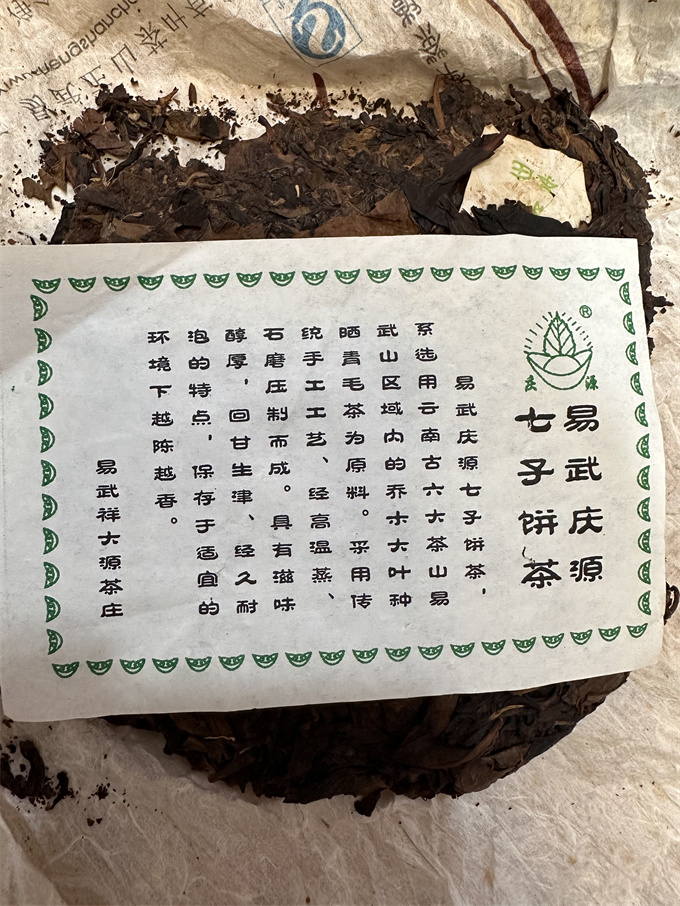 易武庆源
七子饼茶
庆 源
®
易武庆源七子饼茶，
系选用云南古六大茶山易
武山区域内的乔木大叶种
晒青毛茶为原料。采用传
统手工工艺、经高温蒸、
石磨压制而成。具有滋味
醇厚，回甘生津、经久耐
泡的特点，保存于适宜的
环境下越陈越香。
易武祥大源茶庄